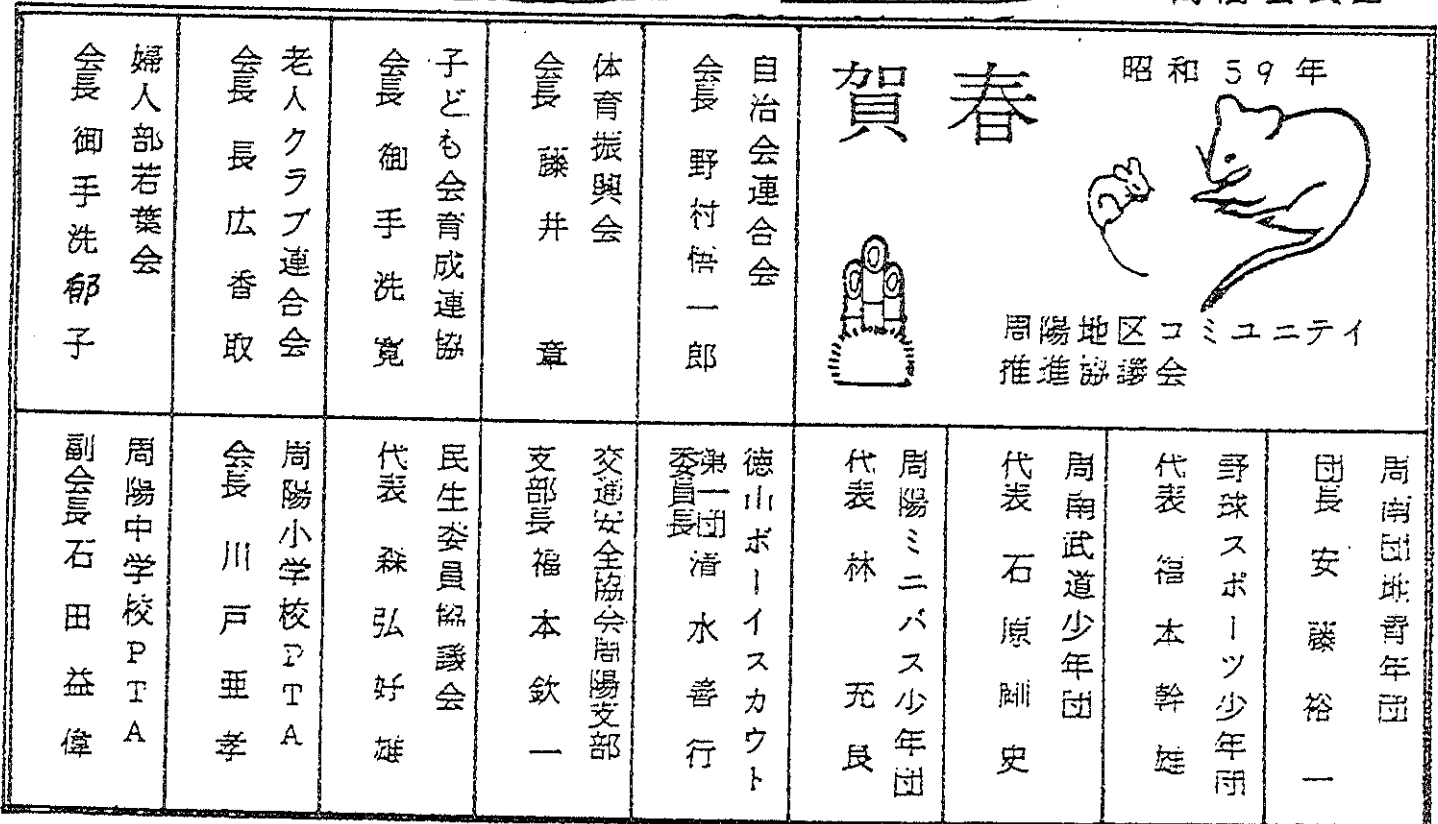 昭和59年
賀春
周陽地区コミュニティ
推進協議会
自治会連合会
会長 野村悟一郎
体育振興会
会長 藤井 章
子ども会育成連協
会長 御手洗寛
老人クラブ連合会
会長 長広香取
婦人部若葉会
会長 御手洗郁子
周南団地青年団
団長 安藤裕一
野球スポーツ少年団
代表 福本幹雄
周南武道少年団
代表 石原剛史
周陽ミニバス少年団
代表 林 充良
徳山ボーイスカウト
第一団
委員長 清水善行
交通安全協会周陽支部
支部長 福本欽一
民生委員協議会
代表 森弘好雄
周陽小学校PTA
会長 川戸亜孝
周陽中学校PTA
副会長 石田益偉